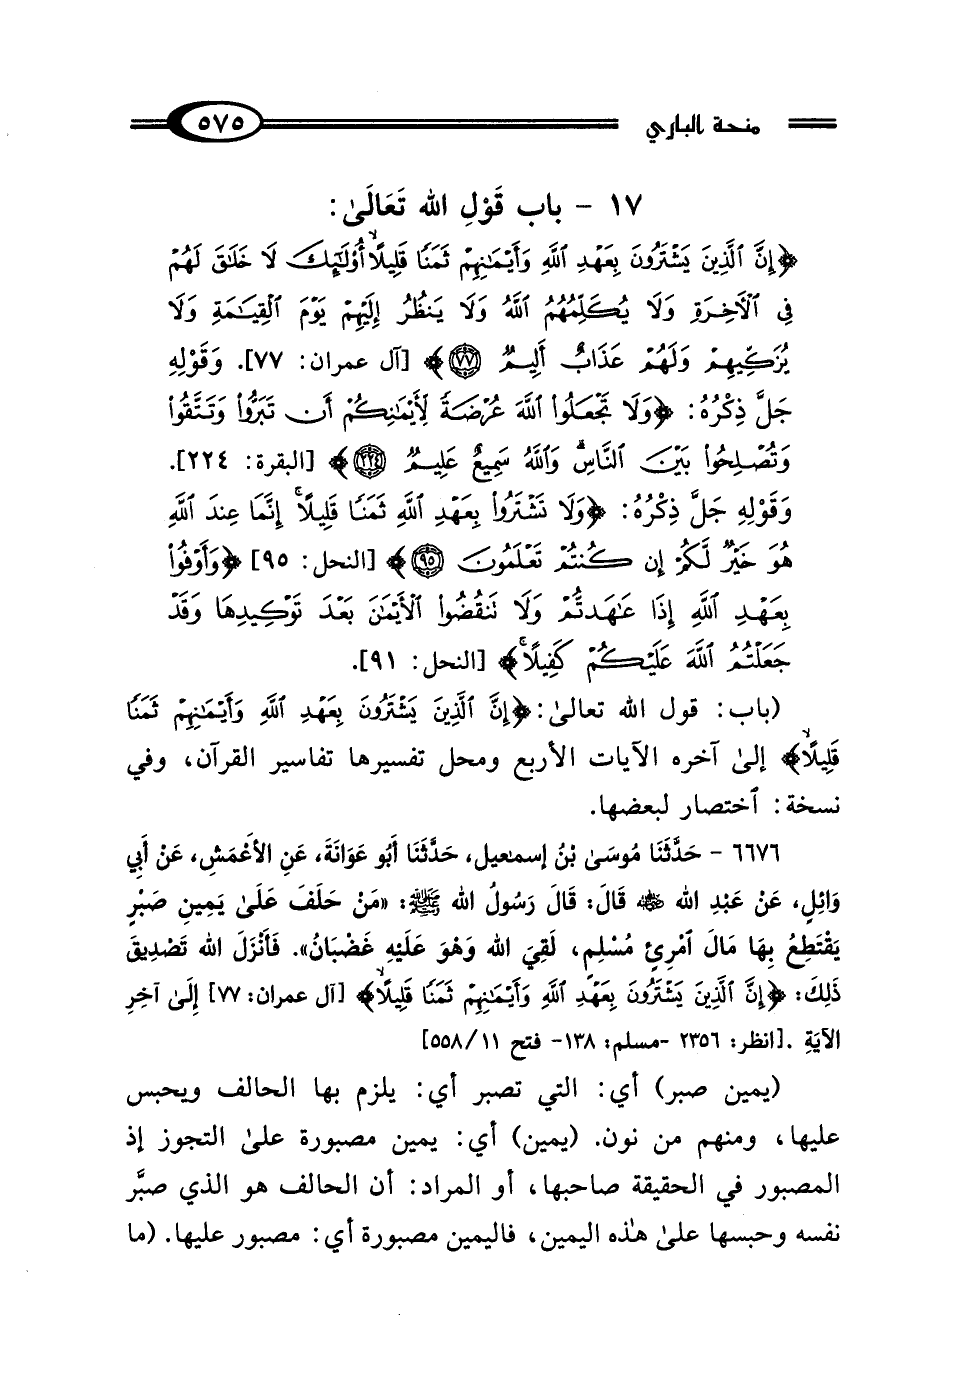 منحة الباري ٥٧٥
١٧ - باب قَوْلِ الله تَعَالَىٰ:
﴿إِنَّ ٱلَّذِينَ يَشْتَرُونَ بِعَهْدِ ٱللَّهِ وَأَيْمَٰنِهِمْ ثَمَنًا قَلِيلًاۙ أُوْلَٰٓئِكَ لَا خَلَٰقَ لَهُمْ
فِى ٱلْأَخِرَةِ وَلَا يُكَلِّمُهُمُ ٱللَّهُ وَلَا يَنظُرُ إِلَيْهِمْ يَوْمَ ٱلْقِيَٰمَةِ وَلَا
يُزَكِّيهِمْ وَلَهُمْ عَذَابٌ أَلِيمٌ ٧٧﴾ [آل عمران: ٧٧]. وَقَوْلِهِ
جَلَّ ذِكْرُهُ: ﴿وَلَا تَجْعَلُوا۟ ٱللَّهَ عُرْضَةً لِّأَيْمَٰنِكُمْ أَن تَبَرُّوا۟ وَتَتَّقُوا۟
وَتُصْلِحُوا۟ بَيْنَ ٱلنَّاسِ وَٱللَّهُ سَمِيعٌ عَلِيمٌ ٢٢٤﴾ [البقرة: ٢٢٤].
وَقَوْلِهِ جَلَّ ذِكْرُهُ: ﴿وَلَا تَشْتَرُوا۟ بِعَهْدِ ٱللَّهِ ثَمَنًا قَلِيلًاۚ إِنَّمَا عِندَ ٱللَّهِ
هُوَ خَيْرٌ لَّكُمْ إِن كُنتُمْ تَعْلَمُونَ ٩٥﴾ [النحل: ٩٥] ﴿وَأَوْفُوا۟
بِعَهْدِ ٱللَّهِ إِذَا عَٰهَدتُّمْ وَلَا تَنقُضُوا۟ ٱلْأَيْمَٰنَ بَعْدَ تَوْكِيدِهَا وَقَدْ
جَعَلْتُمُ ٱللَّهَ عَلَيْكُمْ كَفِيلًاۚ﴾ [النحل: ٩١].
(باب: قول الله تعالىٰ: ﴿إِنَّ ٱلَّذِينَ يَشْتَرُونَ بِعَهْدِ ٱللَّهِ وَأَيْمَٰنِهِمْ ثَمَنًا
قَلِيلًاۙ﴾ إلىٰ آخره الآيات الأربع ومحل تفسيرها تفاسير القرآن، وفي
نسخة: ٱختصار لبعضها.
٦٦٧٦ - حَدَّثَنَا مُوسَىٰ بْنُ إسمعيل، حَدَّثَنَا أَبُو عَوَانَةَ، عَنِ الأَعْمَشِ، عَنْ أَبِي
وَائِلٍ، عَنْ عَبْدِ الله ﵁ قَالَ: قَالَ رَسُولُ الله ﷺ: «مَنْ حَلَفَ عَلَىٰ يَمِينِ صَبْرٍ
يَقْتَطِعُ بِهَا مَالَ ٱمْرِئٍ مُسْلِمٍ، لَقِيَ الله وَهْوَ عَلَيْهِ غَضْبَانُ». فَأَنْزَلَ الله تَصْدِيقَ
ذَلِكَ: ﴿إِنَّ ٱلَّذِينَ يَشْتَرُونَ بِعَهْدِ ٱللَّهِ وَأَيْمَٰنِهِمْ ثَمَنًا قَلِيلًاۙ﴾ [آل عمران: ٧٧] إِلَىٰ آخِرِ
الآيَةِ .[انظر: ٢٣٥٦ -مسلم: ١٣٨- فتح ١١/ ٥٥٨]
(يمين صبر) أي: التي تصبر أي: يلزم بها الحالف ويحبس
عليها، ومنهم من نون. (يمين) أي: يمين مصبورة علىٰ التجوز إذ
المصبور في الحقيقة صاحبها، أو المراد: أن الحالف هو الذي صبَّر
نفسه وحبسها علىٰ هٰذه اليمين، فاليمين مصبورة أي: مصبور عليها. (ما